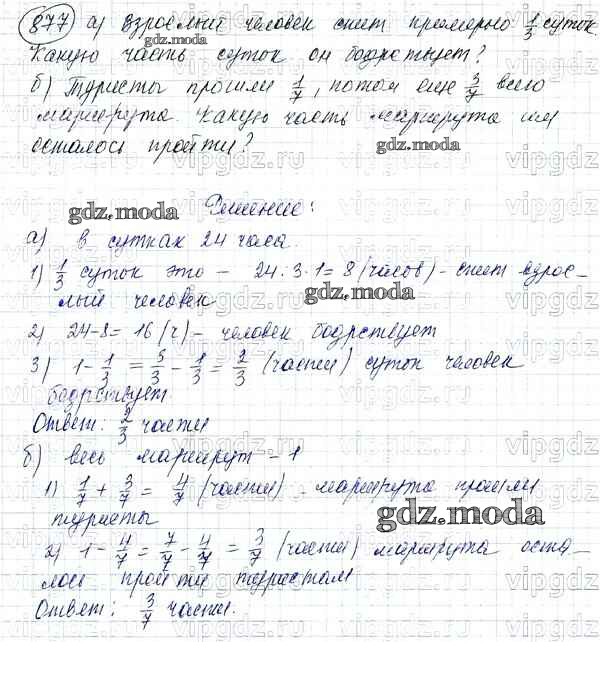 877 а) взрослый человек спит примерно 1/3 суток.
Какую часть суток он бодрствует?
б) Туристы прошли 1/7, потом еще 3/7 всего
маршрута. Какую часть маршрута им
осталось пройти?
gdz.moda
Решение:
gdz.moda
а) в сутках 24 часа.
1) 1/3 суток это – 24:3·1=8 (часов) - спит взрос-
gdz.moda
лый человек
2) 24-8= 16 (ч) – человек бодрствует
3) 1-1/3 = 3/3 - 1/3 = 2/3 (части) суток человек
бодрствует.
Ответ: 2/3 части
б) весь маршрут – 1
1) 1/7 + 3/7 = 4/7 (части) - маршрута прошли
туристы
gdz.moda
2) 1-4/7 = 7/7 - 4/7 = 3/7 (части) маршрута оста-
лось пройти туристам
Ответ: 3/7 части.
vipgdz.ru